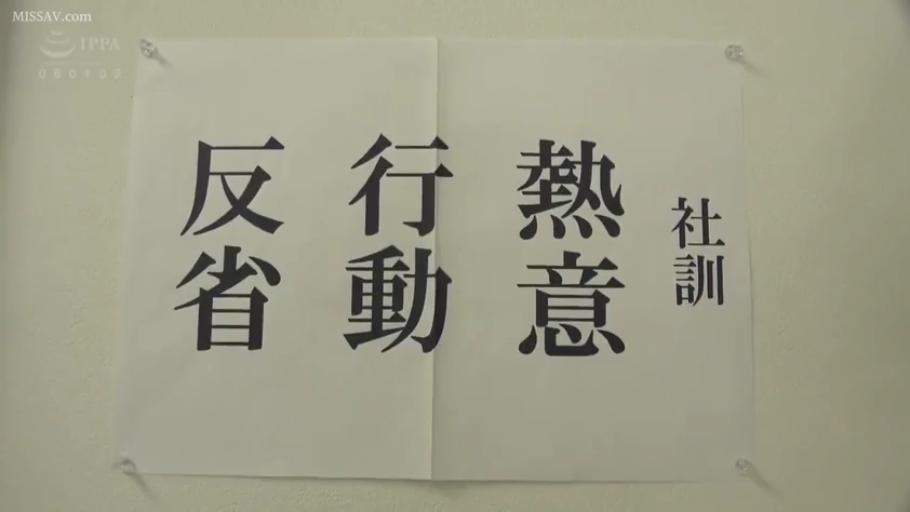 MISSAV.com
IPPA
060102
社訓
熱意
行動
反省